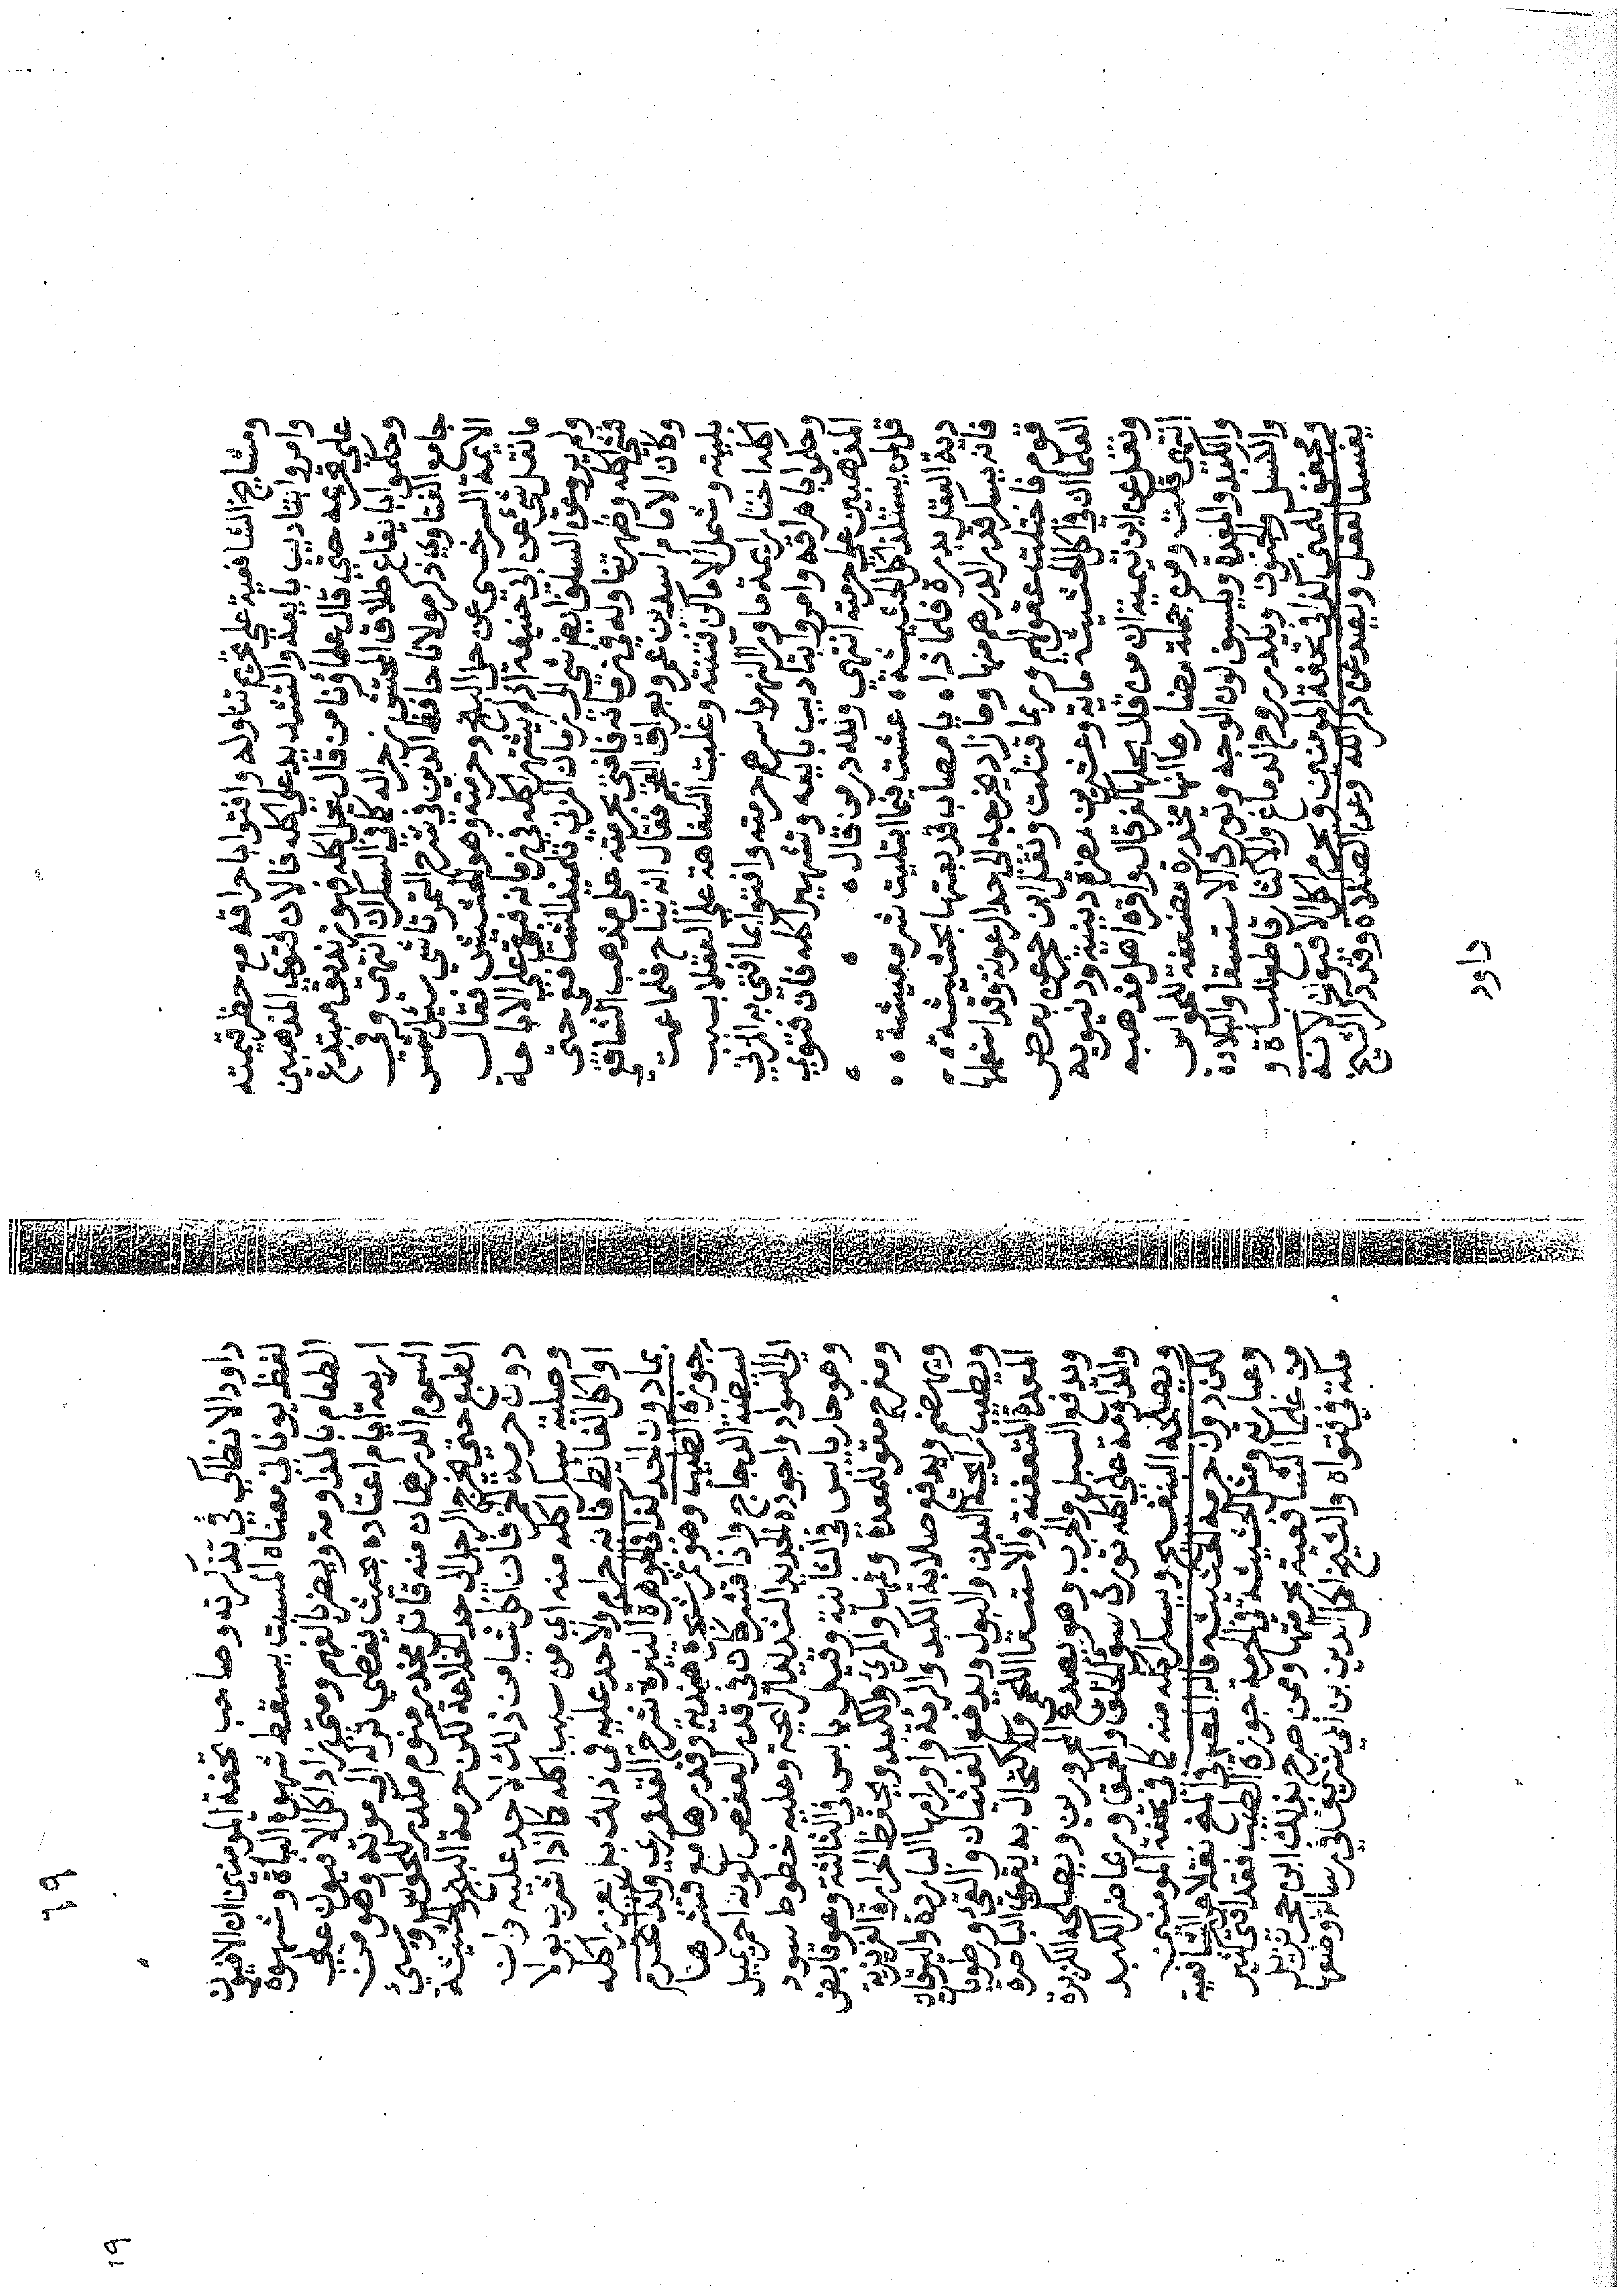 ومشايخ الشافعية علي تحريم تناوله وافتوا باحراقه مع حظر قيمته
وامروا بتاديب بايعه والتشديد علي اكله فالان فتوي المذهبين
علي تحريمه حتي قال علماؤنا من قال بحل اكله فهو زنديق مبتدع
وحكموا بايقاع طلاق المحتشى زجرا له كما في السكران انتهي وفي
جامع الفتاوي ذكر مولانا حافظ الدين في شرح التمرتاشي سئيل شمس
الايمة السرخسي عن حل البنج وحرمته وهو الحشيش فقال
ما نقل شئ عن ابي حنيفة اذ لم يشتهر اكله في زمانه فبقي علي الاباحة
ولم يرو عن السلف ايضا شئ الي زمان المزني تلميذ الشافعي حتي
فشي اكله وظهر تناوله في زمانه فافتي بحرمته علي مذهب الشافعي
وكان الامام اسد بن عمرو بعراق العجم فقال انه يباح فلما عمت
بليته وشمل الاماكن فتنته وغلبت السفاهة علي العقلا بسبب
اكله اختار ايمة ماورآ النهر باسرهم حرمته وافتوا بما افتي به المزني
وحكموا باهراقه وامروا بتاديب بايعه وتشهير اكله فان فتوي
المذهبين علي حرمته انتهي ولله در من قال
قل لمن يستلذ اكل الحشيشه ، عشت فيما ابتليت شر معيشة
دية العقل بدرة فلما ذا ، يا مصاب قد بعتها بحشيشة
فانه يسكر قدر الدرهم منها وما زاد يخرجه الي حد الرعونة وقد استعملها
قوم فاختلت عقولهم وربما قتلت ونقل ابن حجر عن بعض
العلما ان في اكل الحشيشة ماية وعشرين مضرة دينية ودنيوية
ونقل عن ابن تيمية ان من قال بحلها كفر قال واقره اهل مذهبه
انتهي قلت ومن جملة مضارها انها مخدرة مضعفة للحواس
والكبد والمعدة ويسرف لون الوجه وتورث الاستسقا والبلادة
والكسل والجنون ويكدر روح الدماغ والاكثار قاطع للباءة و
ومجفف للمني كذا في تحفة المومنين ويحرم اكل الافيون لانه
يفسد العقل ويصد عن ذكر الله وعن الصلاة وقد ذكر الشيخ
داود
داود الانطاكي في تذكرته وصاحب تحفة المومنين ان الافيون
لفظ يوناني معناه المسبت يسقط شهوة الباة وشهوة
الطعام بالمداومة ويضر بالفهم ومتي زاد اكل الافيون علي
اربعة ايام اعتاده بحيث يفضي تركه الي موته وهو من
السموم الدرهمان منه قاتل مخدر منوم مكدر للحواس وسيئ
الطبع حتي يخرج الرجل الي حد الخلاعة لكن حرمة البنج والحشيشة
دون حرمة الخمر فان اكل شيا من ذلك لا حد عليه وان
وصليه سكر اكله منه اي من سبب اكله كما اذا شرب بولا
او اكل الغائط فانه حرام ولا حد عليه في ذلك بل يعزر اكله
بما دون الحد كذا في الجوهرة النيرة شرح القدوري وكذا تحرم
جوزة الطيب وهو ثمر شجرة هندية وقدرها مع قشرها
لبيضة الدجاج واذا قشر كان في قدر العفص لونه احمر يميل
الي السواد واجوده الجديد الشديد الرايحة وعليه خطوط سود
وهو حار يابس في الثانية وقيل يابس في الثالثة وهو قابض
ومفرح مقو للمعدة وفمها والمري والكبد ويحفظ الحرارة الغريزية
ويهاضم ويدفع صلابة الكبد والرية واورامها الباردة واليرقان
ويطيب رايحة البدن والبول ويدفع الغثيان والقئ ورطوبات
المعدة المتعفنة والاستسقا اللحمي والاكتحال به يقوي الباصرة
ويدفع السبل والجرب وهو يصدع المحرورين ويصلحه الكزبرة
والمداومة علي اكله تورث سو الخلق والحمقا وربما ضر الكبد
ويصلحه البنفسج ويسكر اكله منه كما في تحفة المومنين
لكن دون حرمة الحشيشة قاله المصنف في المنح نقلا عن الشافعية
وعبارته ومثل الحشيشة في الحرمة جوزة الطيب فقد افتي كثير
من علما الشافعية بحرمتها وممن صرح بذلك ابن حجر نزيل
مكة في فتواه والشيخ كمال الدين بن ابي شريف في رسالة وضعها
٦٩
١٩